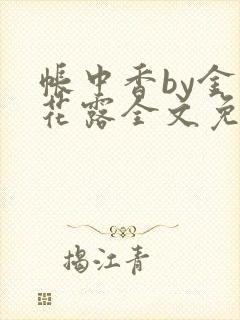 帐中香by金
花露全文免
揭江青